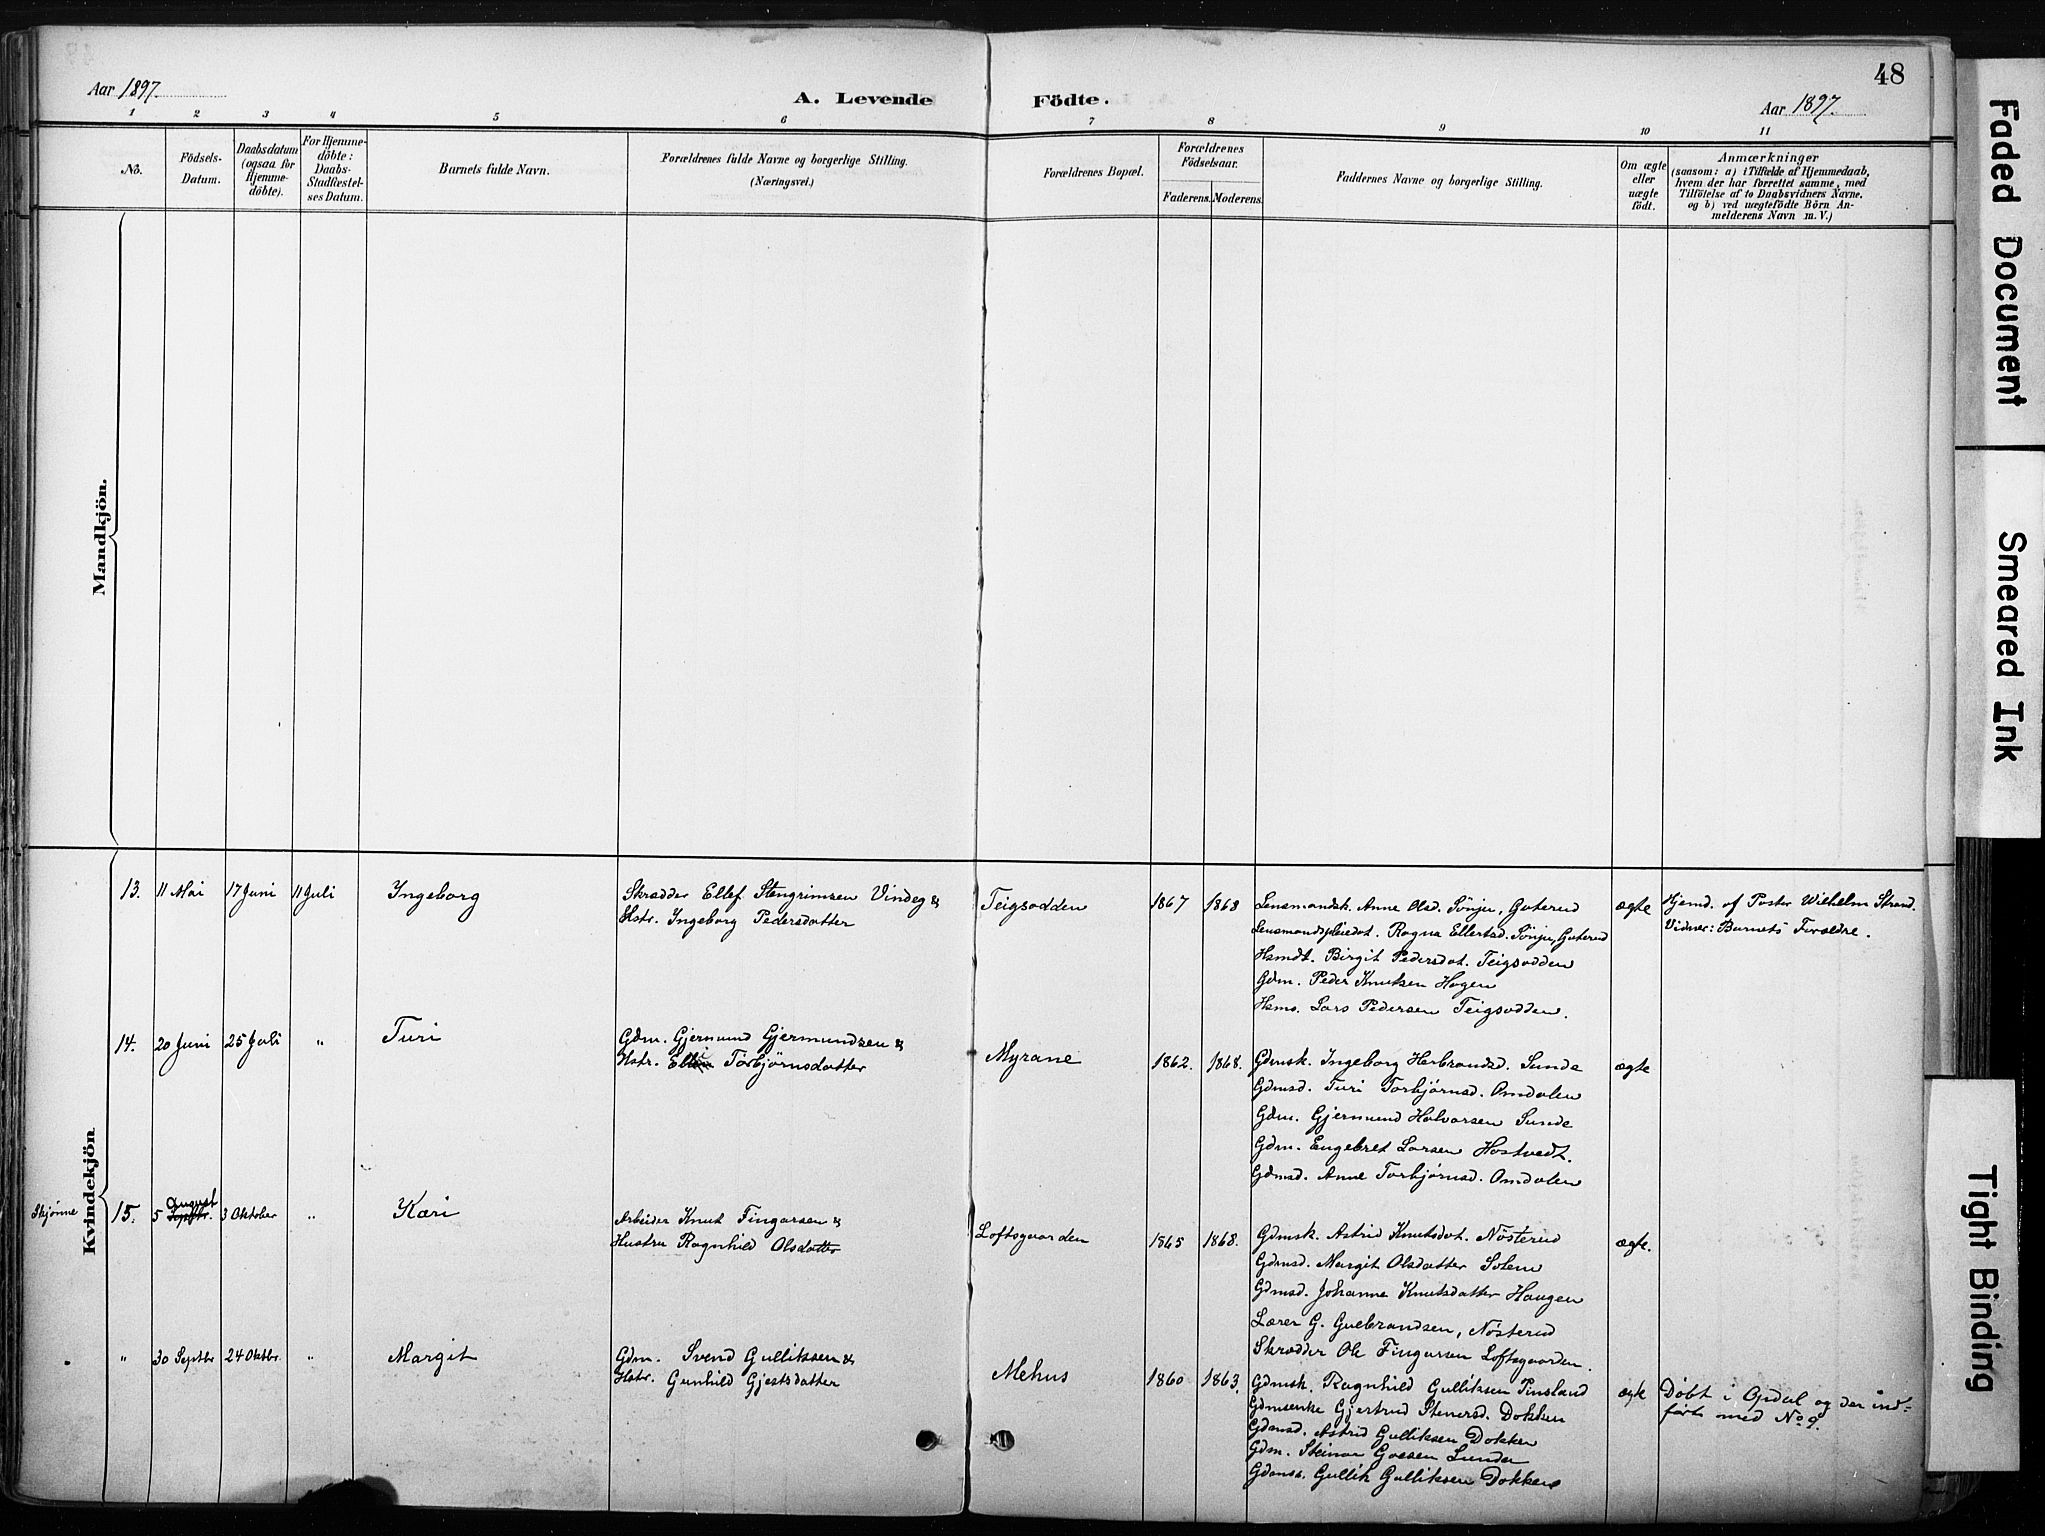 48
Aar 1897.
A. Levende Födte.
Aar 1897.
1 2 3 4 5 6 7 8 9 10 11
Nö.
Födsels-Datum.
Daabsdatum (ogsaa for Hjemme-döbte).
For Hjemme-döbte: Daabs-Stadfæstel-ses Datum.
Barnets fulde Navn.
Forældrenes fulde Navne og borgerlige Stilling.
(Næringsvei.)
Forældrenes Bopæl.
Forældrenes Födselsaar.
Faderens. Moderens.
Faddernes Navne og borgerlige Stilling.
Om ægte eller uægte födt.
Anmærkninger
(saasom: a) i Tilfælde af Hjemmedaab,
hvem der har forrettet samme, med
Tilföielse af to Daabsvidners Navne.
og b) ved uægtefödte Börn An-
melderens Navn m. V.)
Mandkjön.
Kvindekjön
13. 11 Mai 17 Juni 11 Juli Ingeborg
Skrædder Ellef Stengrimsen Vindeg &
Hstr. Ingeborg Pedersdatter
Teigsodden 1867 1868
Lensmandsk. Anne Olsd. Tönju, Guterud
Lensmandspleiedat. Ragna Ellertsd. Tönju, Guterud
Hsmdt. Birgit Pedersdat. Teigsodden
Gdm. Peder Knutsen Hagen
Hsms. Lars Pedersen Teigsodden.
ægte
Hjemd. af Pastor Wilhelm Strand.
Vidner: Barnets Forældre.
14. 20 Juni 25 Juli " Turi
Gdm. Gjermund Gjermundsen &
Hstr. Elli Torbjørnsdatter
Myrane 1862. 1868.
Gdmsk. Ingeborg Herbrandsd. Sunde
Gdmsd. Turi Torbjørnsd. Omdalen
Gdm. Gjermund Halvorsen Sunde
Gdm. Engebret Larsen Hostvedt.
Gdmsd. Anne Torbjørnsd. Omdalen
ægte
Skjønne 15. 5 August Septbr. 3 Oktober " Kari
Arbeider Knut Fingarsen &
Hustru Ragnhild Olsdatter
Loftsgaarden 1865 1868.
Gdmsk. Astrid Knutsdat. Nösterud
Gdmsd. Margit Olsdatter Solem
Gdmsd. Johanne Knutsdatter Haugen
Lærer G. Gulbrandsen, Nösterud
Skrædder Ole Fingarsen Loftsgaarden.
ægte.
" 30 Septbr 24 Oktbr. " Margit
Gdm. Svend Gulliksen &
Hstr. Gunhild Gjestsdatter
Mehus 1860 1863.
Gdmsk. Ragnhild Gulliksen Pinsland
Gdmsenke Gjertrud Stenersd. Dokken
Gdmsd. Astrid Gulliksen Dokken
Gdm. Steinar Goesen Lunder
Gdmss. Gullik Gulliksen Dokken
ægte
Döbt i Opdal og der ind-
fört med No 9.
Faded Document
Smeared Ink
Tight Binding